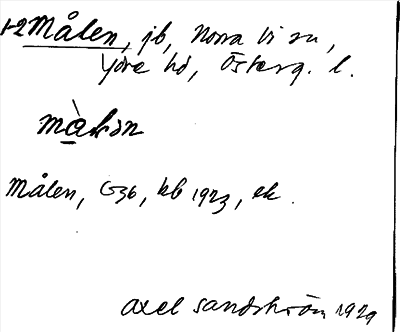 1-2 Målen, jb, Norra Vi sn,
Ydre hd, Österg. l.
Målen, G36, kb 1923, ek.
Axel Sandström 1929